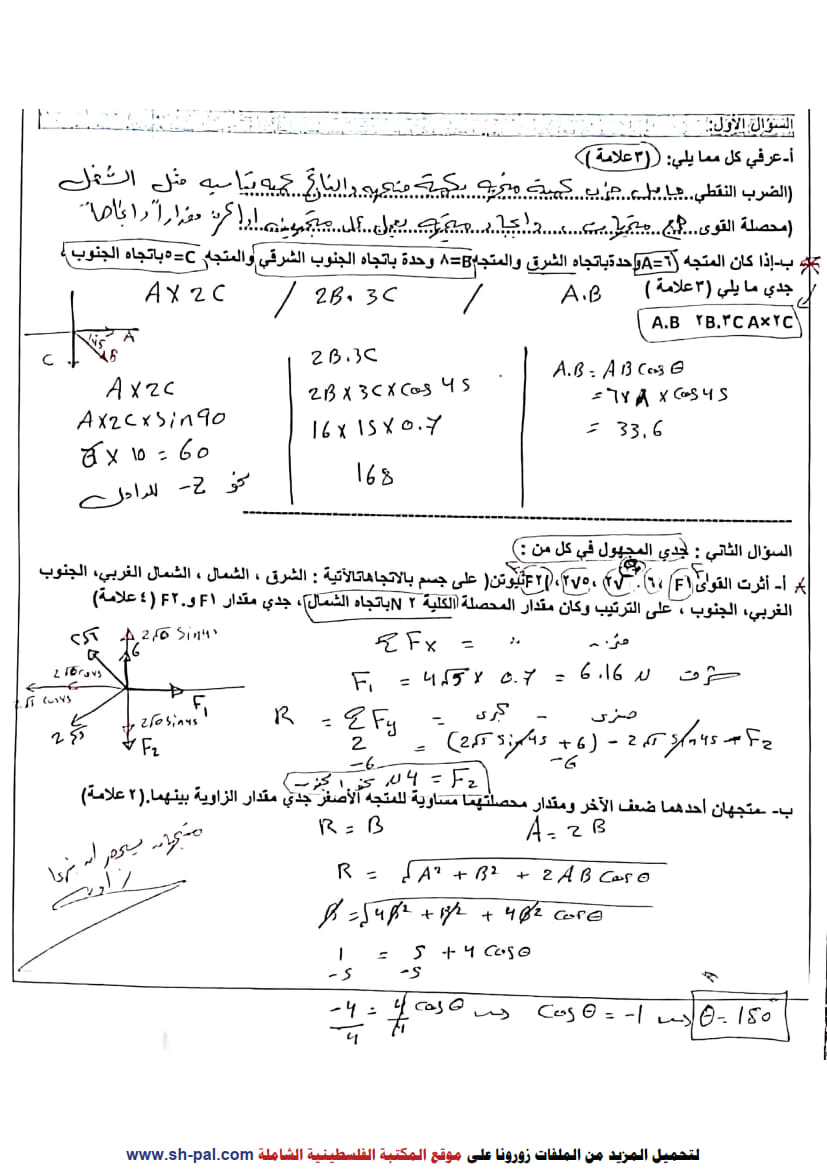 السؤال الأول:
أ-عرفي كل مما يلي: (٣علامة)
(الضرب النقطي حاصل ضرب كمية متجهه بكمية متجهه والناتج كميه قياسيه مثل الشغل
(محصلة القوى
ب-إذا كان المتجه A=٦وحدة باتجاه الشرق والمتجه B=٨ وحدة باتجاه الجنوب الشرقي والمتجه C=٥باتجاه الجنوب ،
جدي ما يلي (٣علامة )
A.B ٢B.٣C A×٢C
A X 2C / 2B. 3C / A.B
A
45
B
C
A X 2C
A X 2C X Sin90
6 X 10 = 60
نحو Z- للداخل
2B.3C
2B X 3C X Cos 45
16 X 15 X 0.7
168
A.B = AB Cos θ
= 6 X 8 X Cos 45
= 33.6
السؤال الثاني : جدي المجهول في كل من :
أ- أثرت القوى F١ ،٦ ،٢√٥ ،٢√٥ ،F٢ )نيوتن( على جسم بالاتجاهات الآتية : الشرق ، الشمال ، الشمال الغربي، الجنوب
الغربي، الجنوب ، على الترتيب وكان مقدار المحصلة الكلية ٢ N باتجاه الشمال ، جدي مقدار F١ و F٢. (٤ علامة)
2√5
2√5 Sin45
6
2√5 Cos45
2√5 Cos45
F1
2√5
2√5 Sin45
F2
ΣFx =
F1 = 4√5 X 0.7 = 6.16 N شرق
R = ΣFy = كبرى - صغرى
2 = (2√5 Sin45 + 6) - 2√5 Sin45 + F2
-6 -6
4 N = F2
ب- متجهان أحدهما ضعف الآخر ومقدار محصلتهما مساوية للمتجه الأصغر جدي مقدار الزاوية بينهما.(٢ علامة)
R = B A = 2B
R = √A² + B² + 2AB Cos θ
B = √4B² + B² + 4B² Cos θ
1 = 5 + 4 Cos θ
-5 -5
-4 = 4 Cos θ Cos θ = -1 θ = 180°
4 4
لتحميل المزيد من الملفات زورونا على موقع المكتبة الفلسطينية الشاملة www.sh-pal.com